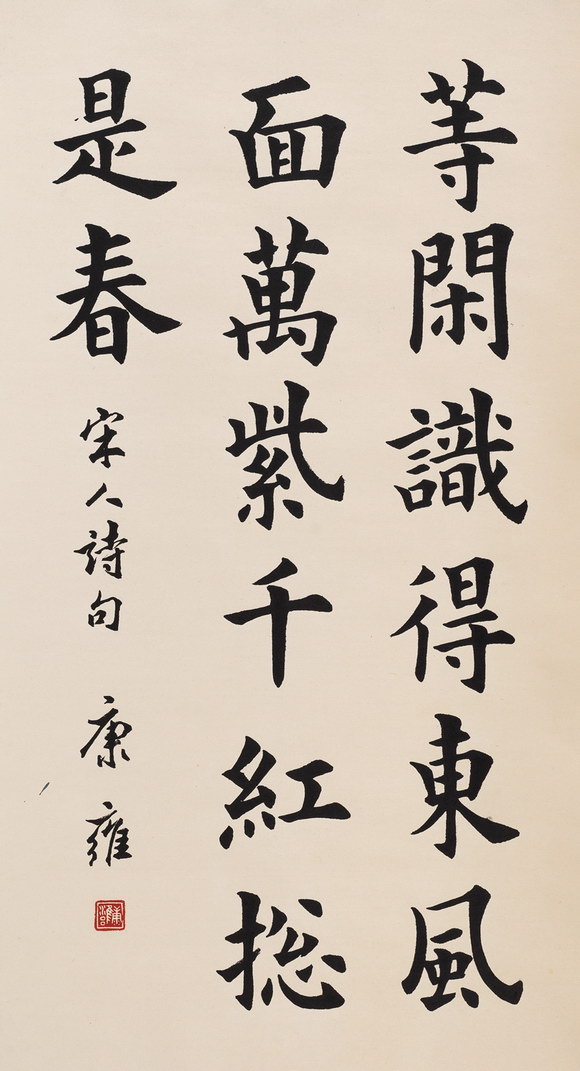 等閑識得東風
面萬紫千紅揔
是春
宋人詩句 康雍